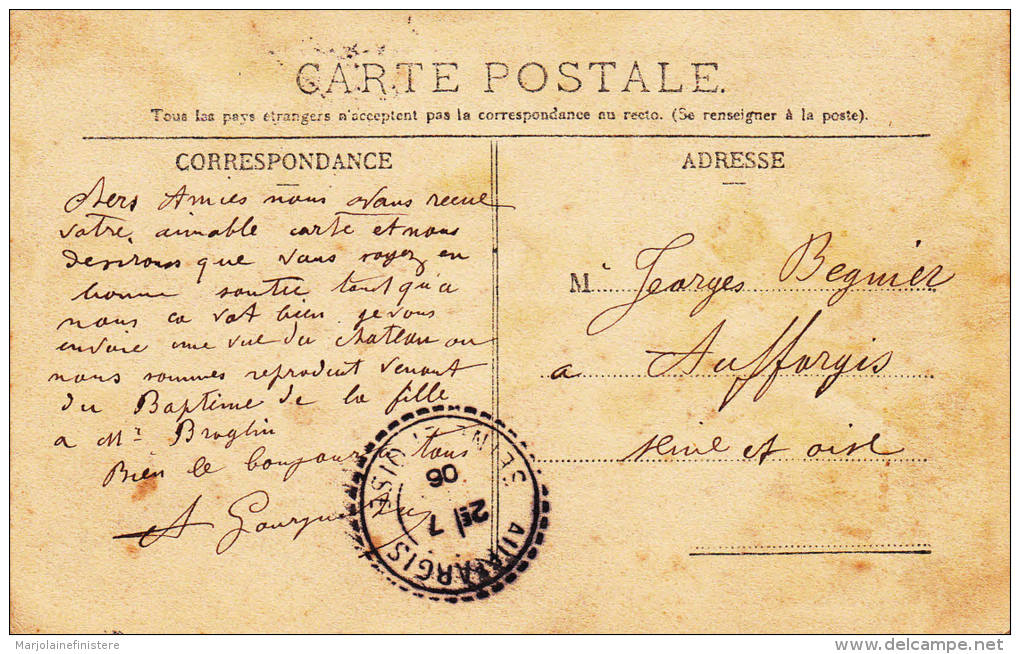 CARTE POSTALE.
Tous les pays étrangers n'acceptent pas la correspondance au recto. (Se renseigner à la poste).
CORRESPONDANCE
Chers Amies nous avons recue
votre aimable carte et nous
desirons que vous soyez en
bonne santée tout qu'a
nous ca vat bien je vous
envoie une vue du chateau ou
nous sommes reproduit venant
du Baptême de la fille
a Mr Broglin
Bien le bonjour a tous
A
ADRESSE
Mr Georges Begnier
a Auffargis
seine et oise
AUFFARGIS
SEINE ET OISE
2E
7
06
Marjolainefinistere
delcampe.net